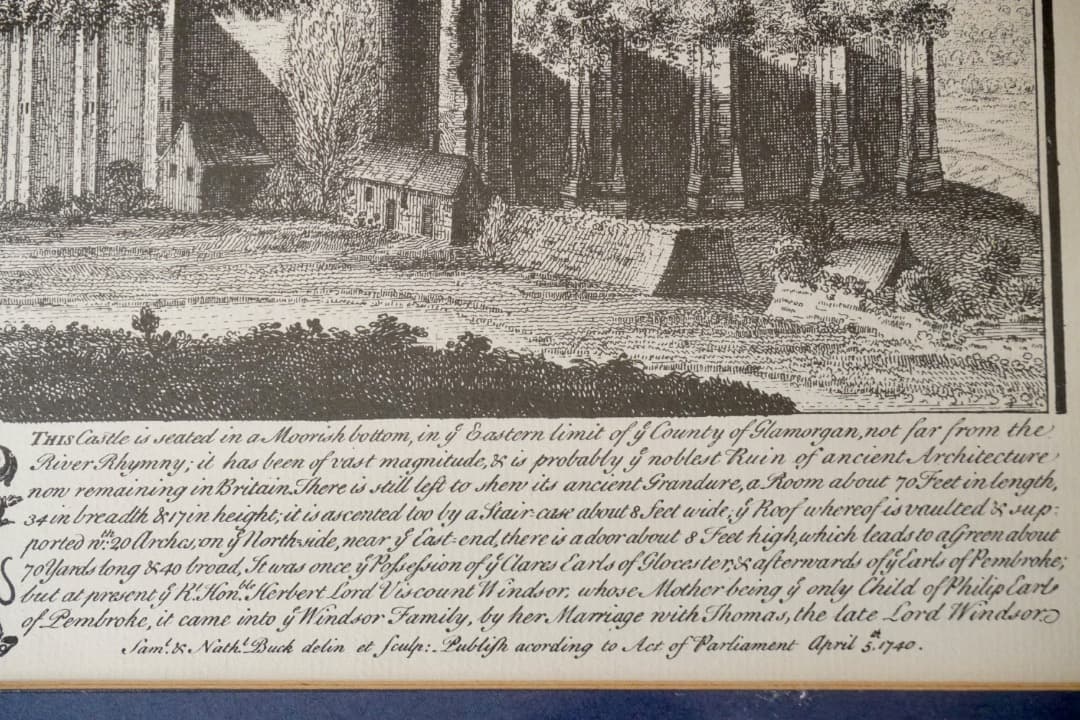 THIS Castle is seated in a Moorish bottom, in yᵉ Eastern limit of yᵉ County of Glamorgan, not far from the
River Rhymny; it has been of vast magnitude, & is probably yᵉ noblest Ruin of ancient Architecture
now remaining in Britain. There is still left to shew its ancient Grandure, a Room about 70 Feet in length,
34 in breadth & 17 in height; it is ascented too by a Stair-case about 8 feet wide; yᵉ Roof whereof is vaulted & sup-
ported wᵗʰ: 20 Arches, on yᵉ North-side, near yᵉ East-end, there is a door about 8 Feet high, which leads to a Green about
70 Yards long & 40 broad, It was once yᵉ Possession of yᵉ Clares Earls of Glocester, & afterwards of yᵉ Earls of Pembroke;
but at present yᵉ Rᵗ. Honᵇˡᵉ. Herbert Lord Viscount Windsor, whose Mother being yᵉ only Child of Philip Earl
of Pembroke, it came into yᵉ Windsor Family, by her Marriage with Thomas, the late Lord Windsor.
Samˡ. & Nathˡ. Buck delin et Sculp: Publish acording to Act of Parliament April 5.ᵗʰ 1740.